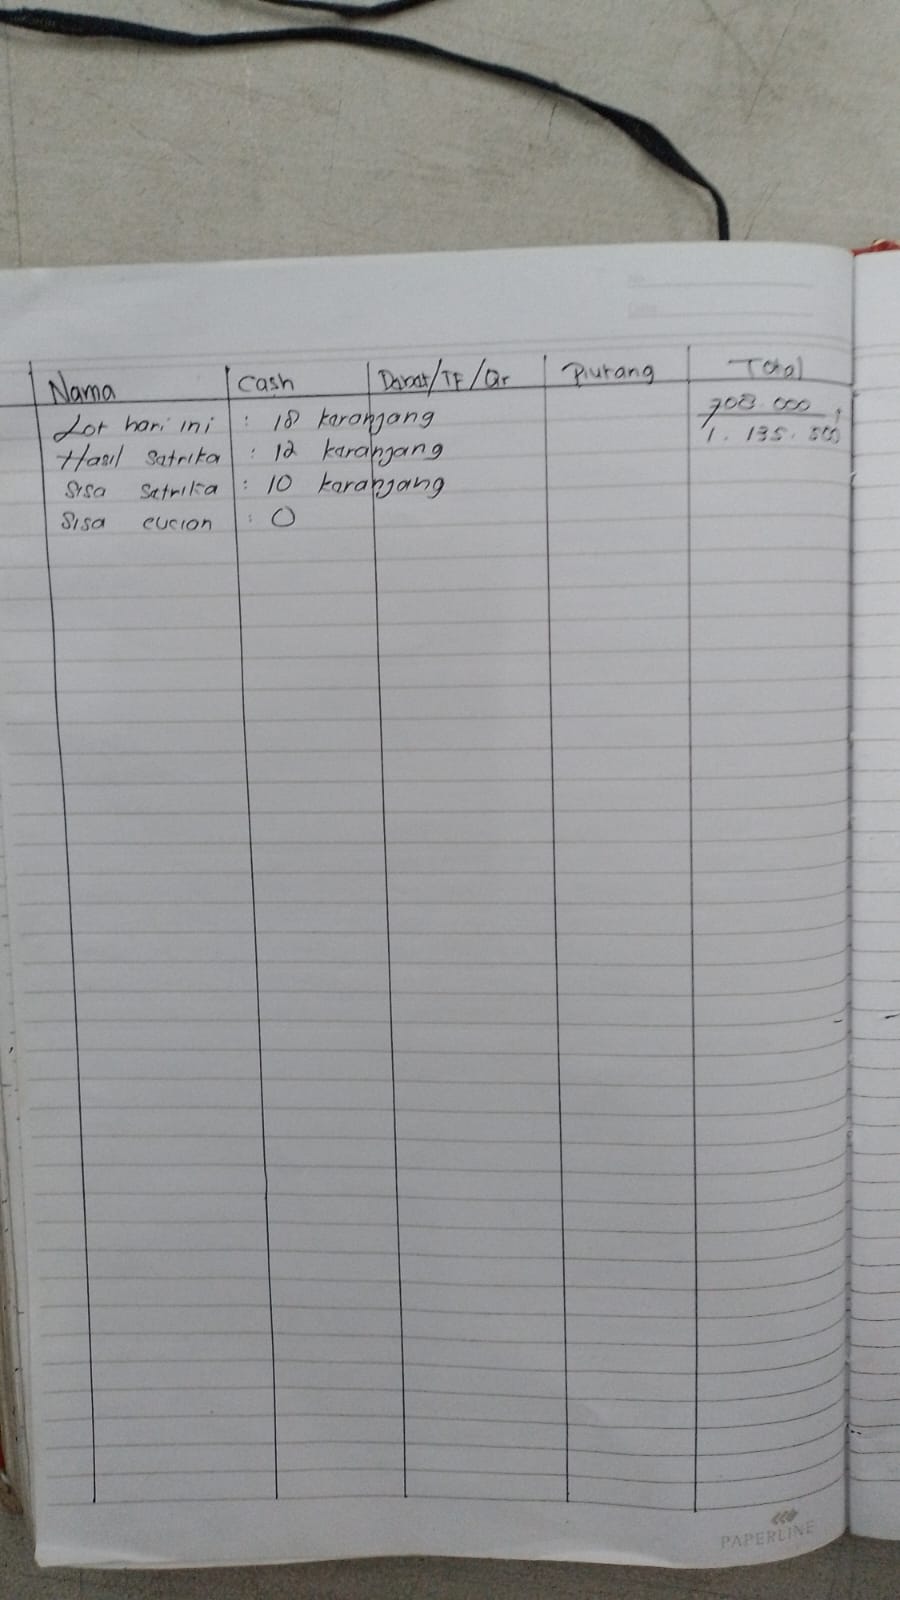 Nama Cash Debet/TF/Qr Piutang Total
Lot hari ini : 18 karanjang 708.000
Hasil Satrika : 12 karanjang 1.135.500
Sisa Satrika : 10 karanjang
Sisa cucion : 0
PAPERLINE